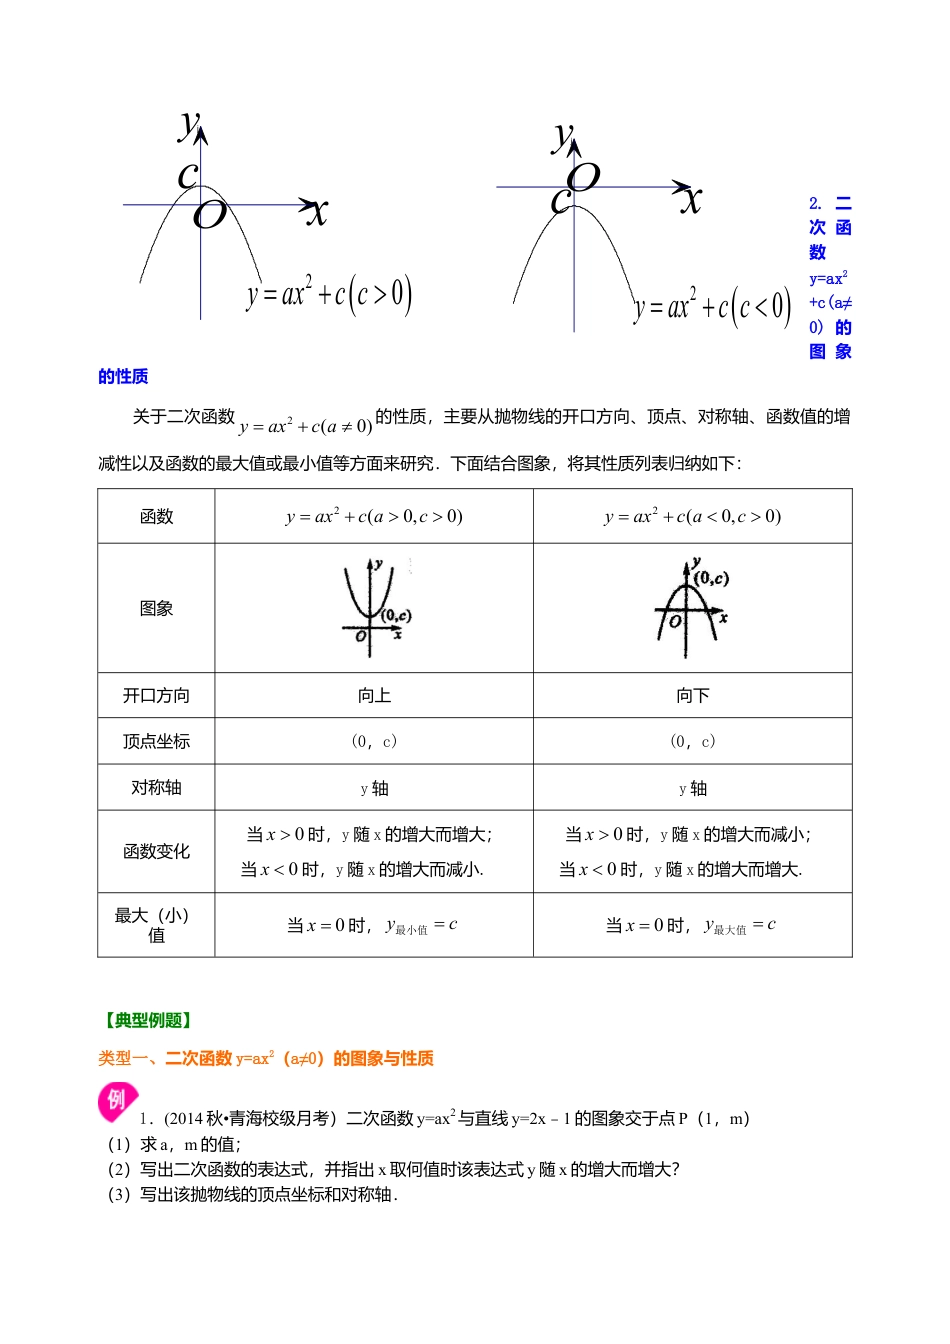 y
c
O
x
y=ax²+c(c>0)
y
O
c
x
y=ax²+c(c<0)
2. 二
次 函
数
y=ax²
+c(a≠
0) 的
图 象
的性质
关于二次函数 y=ax²+c(a≠0) 的性质，主要从抛物线的开口方向、顶点、对称轴、函数值的增
减性以及函数的最大值或最小值等方面来研究．下面结合图象，将其性质列表归纳如下：
函数 y=ax²+c(a>0,c>0) y=ax²+c(a<0,c>0)
图象
y
(0,c)
O x
y
(0,c)
O x
开口方向 向上 向下
顶点坐标 (0，c) (0，c)
对称轴 y 轴 y 轴
函数变化
当 x>0 时，y 随 x 的增大而增大；
当 x<0 时，y 随 x 的增大而减小.
当 x>0 时，y 随 x 的增大而减小；
当 x<0 时，y 随 x 的增大而增大.
最大（小）
值
当 x=0 时，y最小值=c
当 x=0 时，y最大值=c
【典型例题】
类型一、二次函数 y=ax²（a≠0）的图象与性质
例 1．(2014 秋•青海校级月考）二次函数 y=ax²与直线 y=2x﹣1 的图象交于点 P（1，m）
（1）求 a，m 的值；
（2）写出二次函数的表达式，并指出 x 取何值时该表达式 y 随 x 的增大而增大？
（3）写出该抛物线的顶点坐标和对称轴．